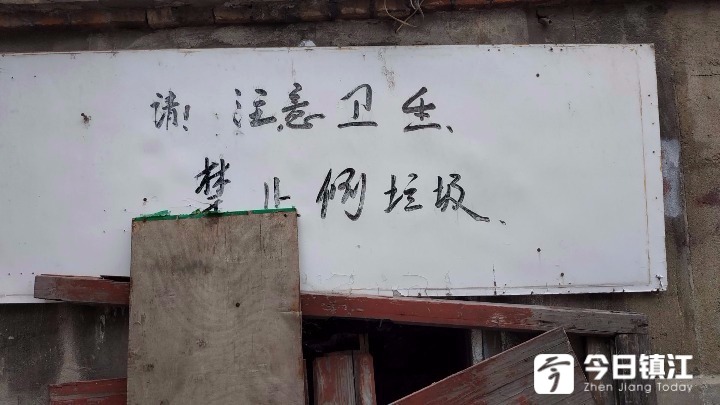 请注意卫生、
禁止倒垃圾、
今日镇江
Zhen Jiang Today